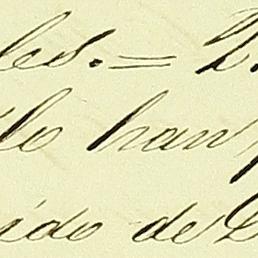 les. =
lo han
ido de